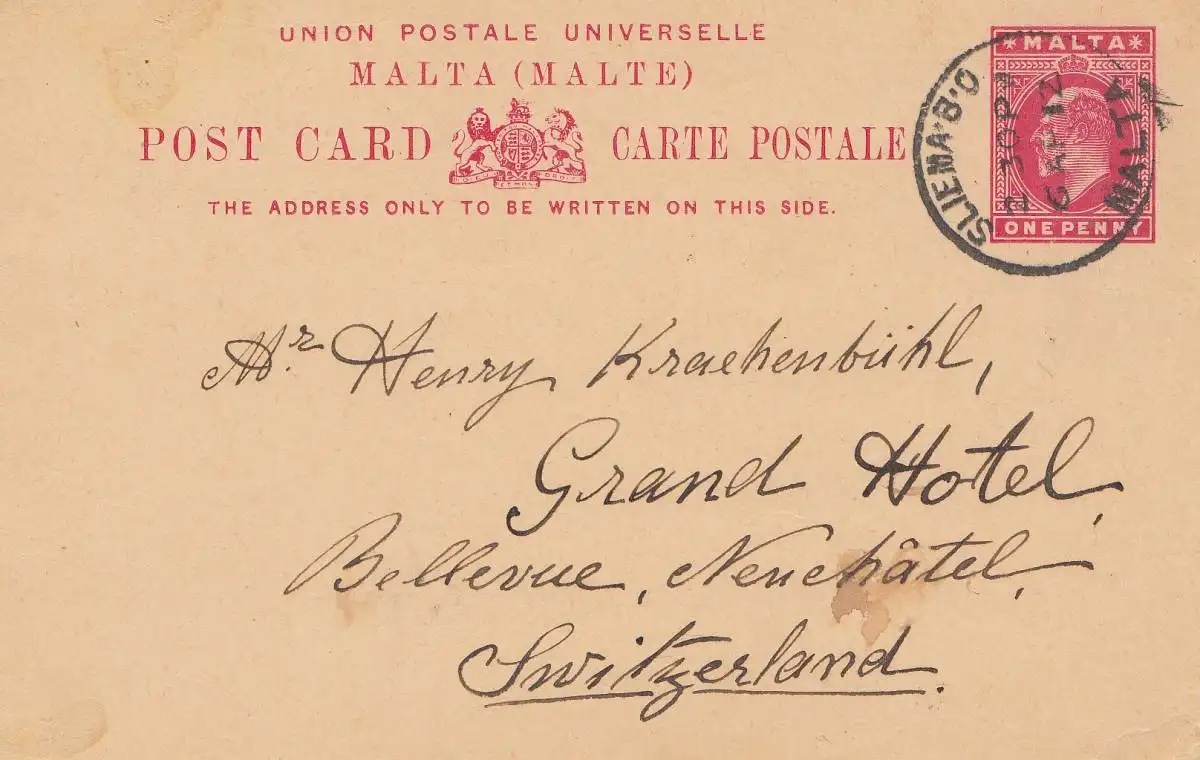 UNION POSTALE UNIVERSELLE
MALTA (MALTE)
POST CARD CARTE POSTALE
THE ADDRESS ONLY TO BE WRITTEN ON THIS SIDE.
*MALTA*
ONE PENNY
SLIEMA·B·O
AP 12
MALTA
Mr Henry Kraehenbühl,
Grand Hotel,
Bellevue, Neuchâtel,
Switzerland.